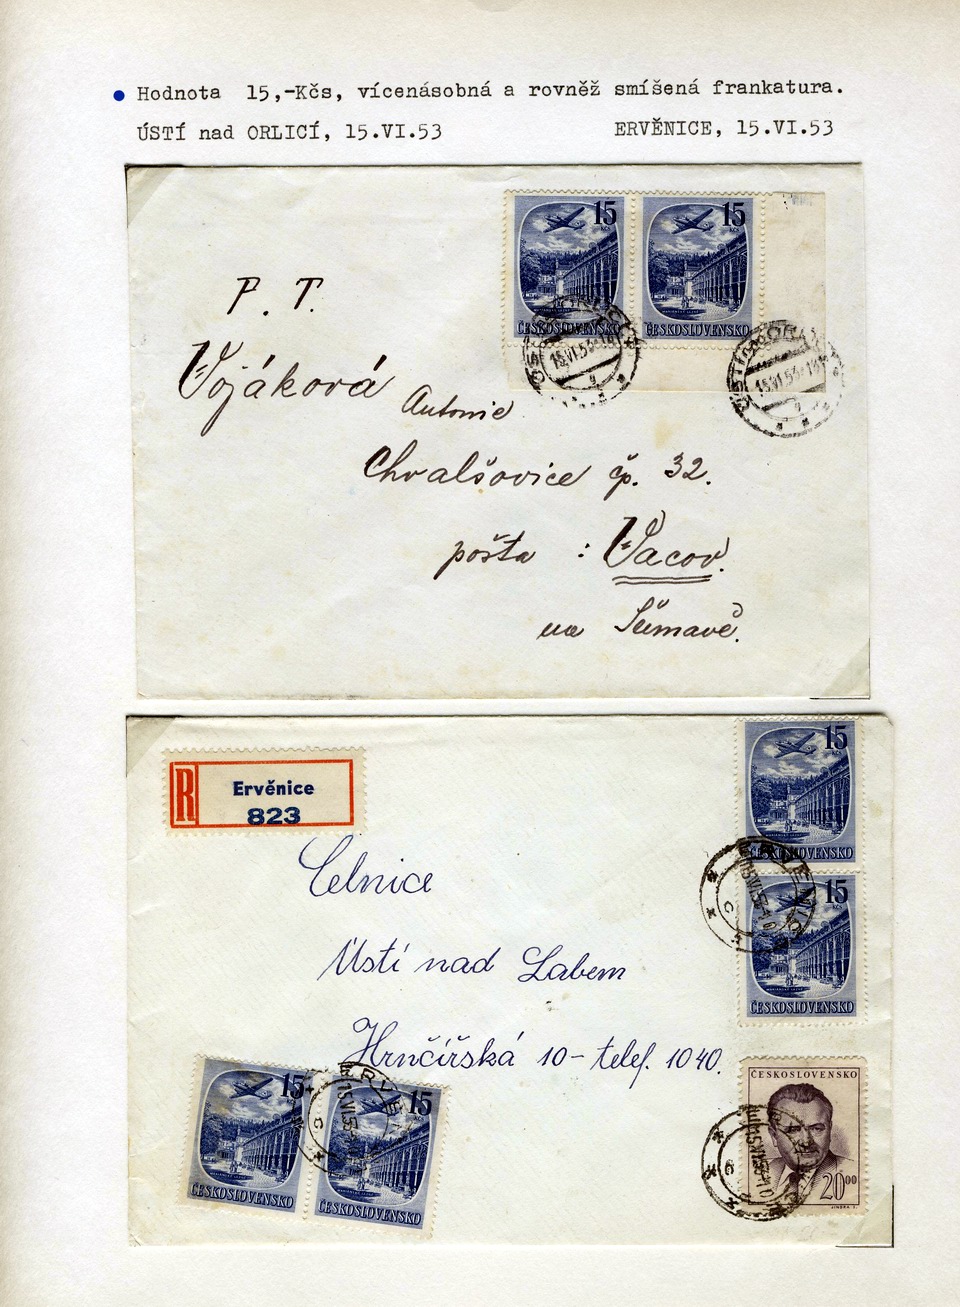 Hodnota 15,-Kčs, vícenásobná a rovněž smíšená frankatura.
ÚSTÍ nad ORLICÍ, 15.VI.53
ERVĚNICE, 15.VI.53
15 Kčs
15 Kčs
ČESKOSLOVENSKO
ČESKOSLOVENSKO
15.VI.53
15.VI.53
P. T.
Vojáková Antonie
Chvalšovice čp. 32.
pošta : Vacov.
na Šumavě.
R
Ervěnice
823
15 Kčs
ČESKOSLOVENSKO
15 Kčs
ČESKOSLOVENSKO
Celnice
Ústí nad Labem
Hrnčířská 10 - telef. 1040.
15
15
ČESKOSLOVENSKO
ČESKOSLOVENSKO
ČESKOSLOVENSKO
2000
JINDRA J.